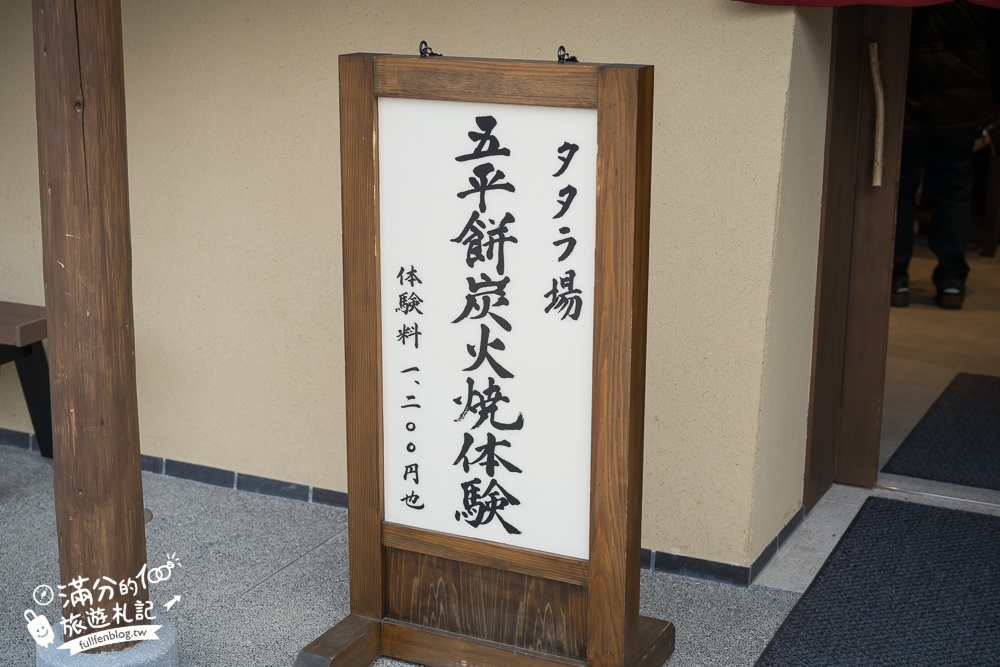 タタラ場
五平餅炭火焼体験
体験料 一、二〇〇円也
滿分的
旅遊札記
fullfenblog.tw